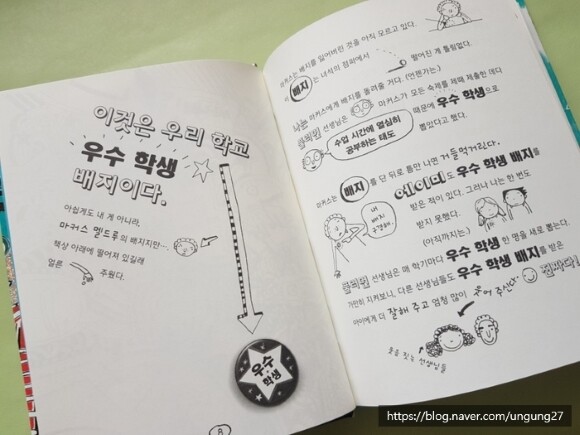 이것은 우리 학교
우수 학생
배지이다.
아쉽게도 내 게 아니라,
마커스 멜드루의 배지지만…
책상 아래에 떨어져 있길래
얼른 주웠다.
우수
학생
8
마커스는 배지를 잃어버린 것을 아직 모르고 있다.
이 배지는 녀석의 점퍼에서 떨어진 게 틀림없다.
나는 마커스에게 배지를 돌려줄 거다. (언젠가는.)
선생님은 마커스가 모든 숙제를 제때 제출한 데다
수업 시간에 열심히
공부하는 태도
때문에 우수 학생으로
뽑았다고 했다.
마커스는 배지를 단 뒤로 틈만 나면 거들먹거린다.
내
배지
구경해
에이미도 우수 학생 배지를
받은 적이 있다. 그러나 나는 한 번도
받지 못했다.
(아직까지는.)
선생님은 매 학기마다 우수 학생 한 명을 새로 뽑는다.
가만히 지켜보니, 다른 선생님들도 우수 학생 배지를 받은
아이에게 더 잘해 주고 엄청 많이 웃어 주신다
진짜다!
웃음 짓는 선생님들
https://blog.naver.com/ungung27